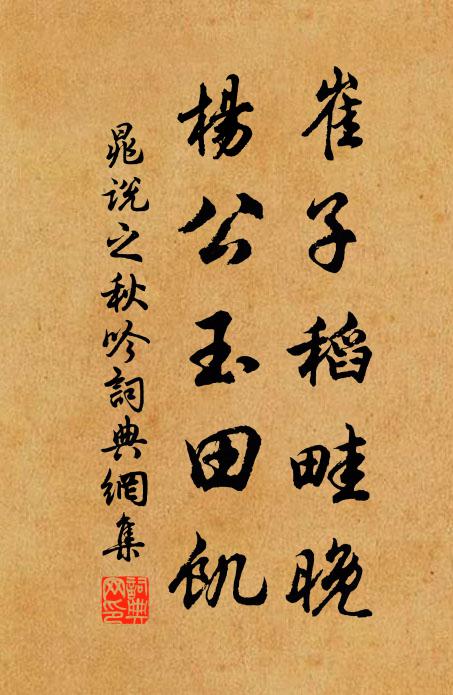 崔子稻畦晚
楊公玉田飢
晁說之秋吟詞典網集
詞典網印